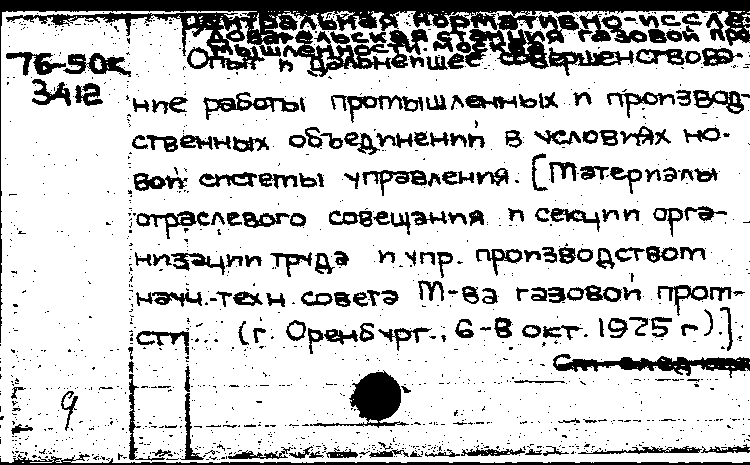 Центральная нормативно-иссле-
довательская станция газовой про-
мышленности. Москва.
76-50к
3412
Опыт и дальнейшее совершенствова-
ние работы промышленных и производ-
ственных объединений в условиях но-
вой системы управления. [Материалы
отраслевого совещания и секции орга-
низации труда и упр. производством
научн.-техн. совета М-ва газовой пром-
сти... (г. Оренбург., 6-8 окт. 1975 г.)].
9